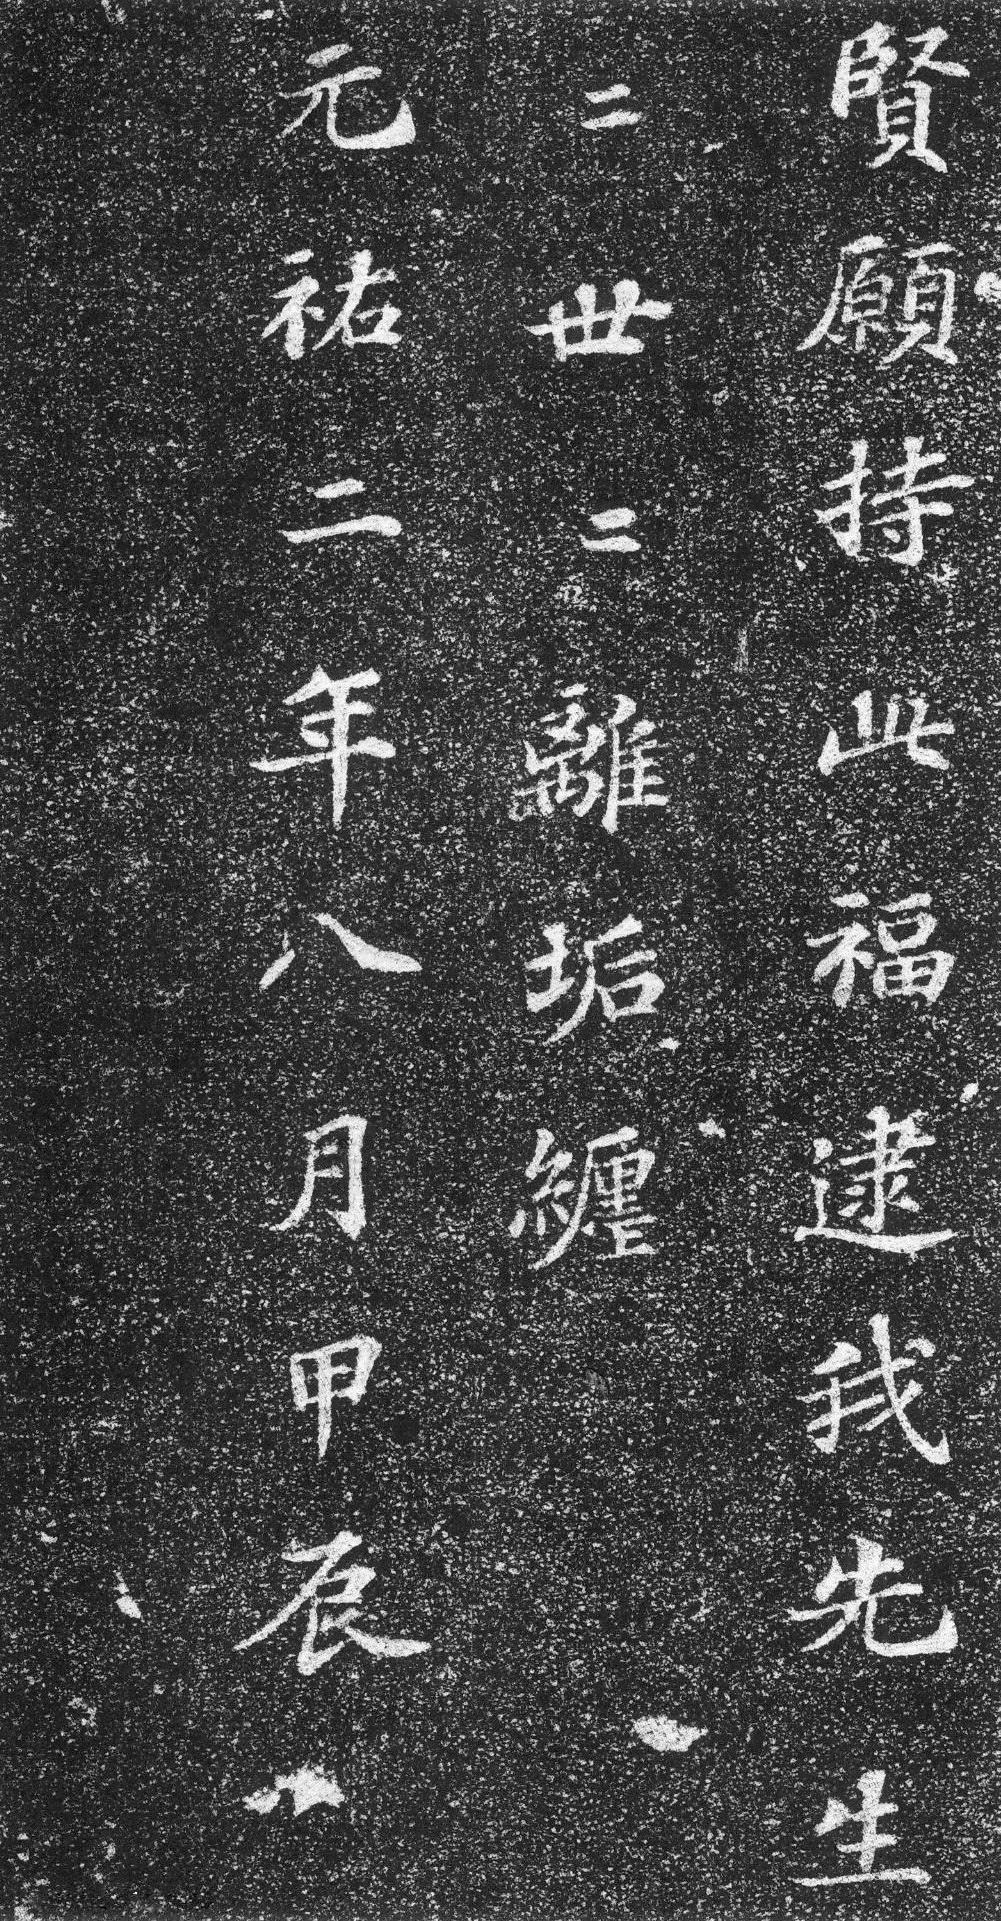 賢願持此福逮我先生
二世二離垢纏
元祐二年八月甲辰